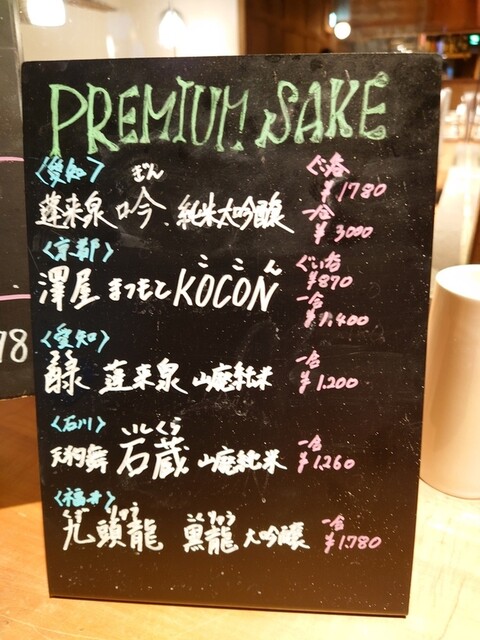 PREMIUM SAKE
〈愛知〉
ぎん
ぐい呑
¥1780
蓬来泉 吟 純米大吟醸
一合
¥3000
〈京都〉
ここん
ぐい呑
¥870
澤屋 まつもと KOCON
一合
¥1,400
〈愛知〉
蓬来泉 山廃純米
一合
¥1.200
〈石川〉
いしくら
天狗舞 石蔵 山廃純米
一合
¥1.260
〈福井〉
九頭龍 黒龍 大吟醸
一合
¥1.780
78